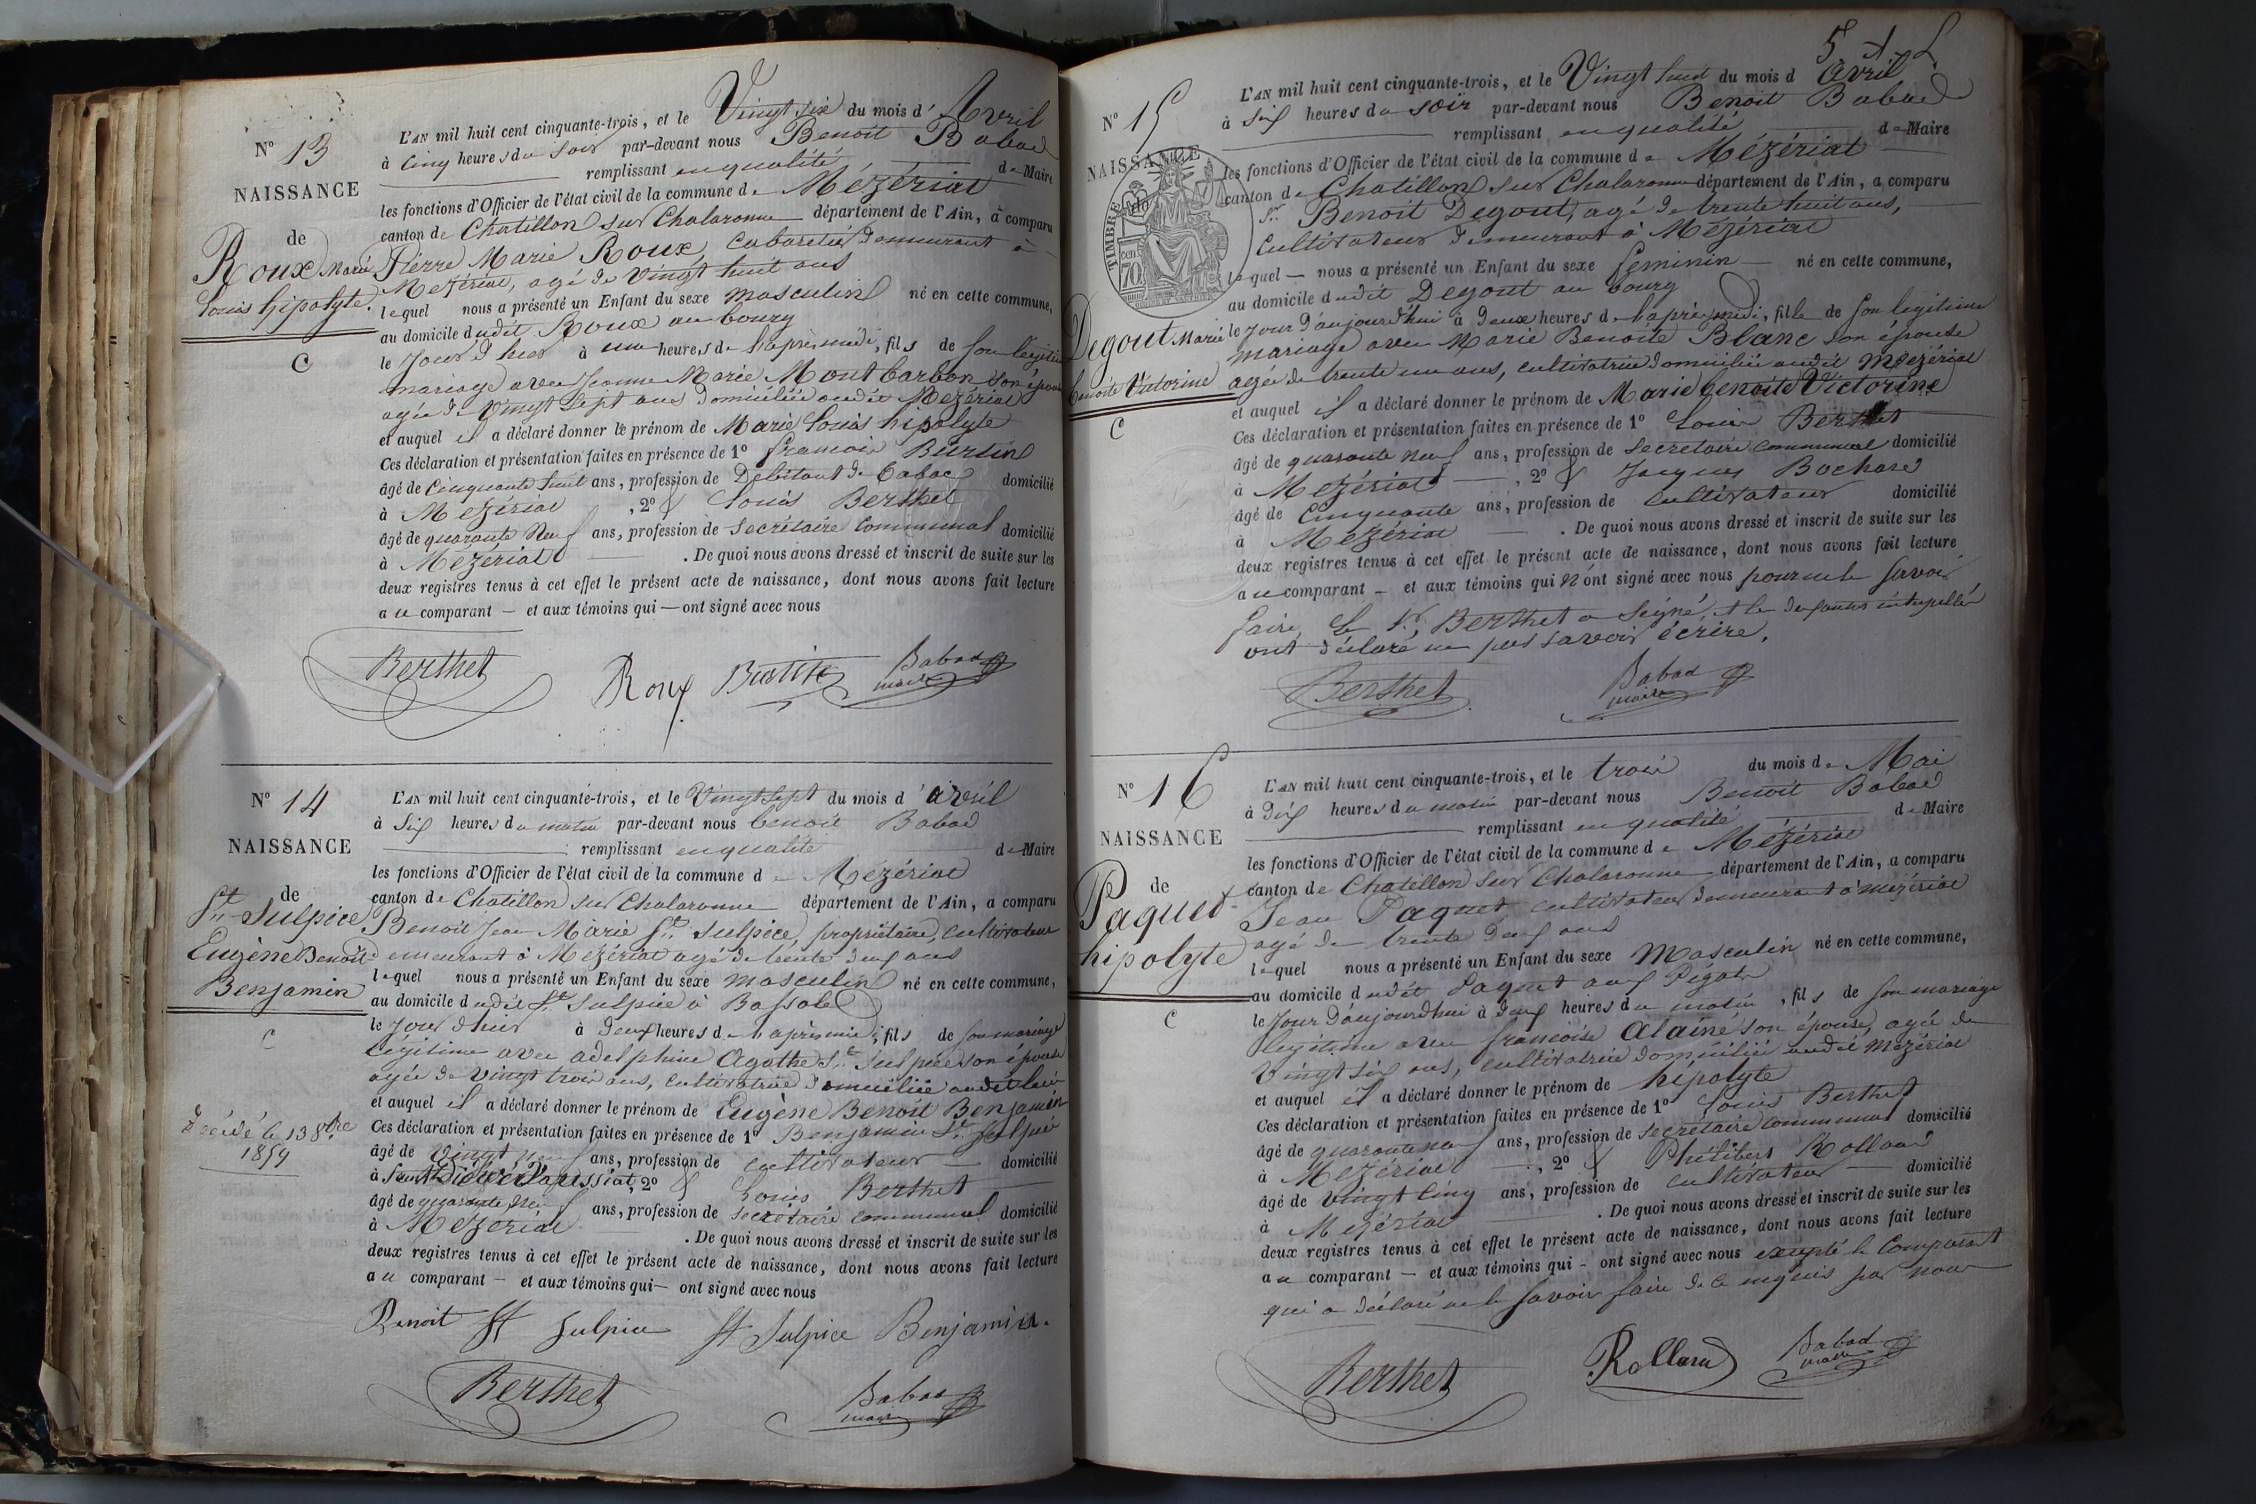 N° 13
NAISSANCE
de
Roux Marie
Louis hipolyte.
C
L'AN mil huit cent cinquante-trois, et le Vingt six du mois d' Avril
à Cinq heures du soir par-devant nous Benoit Babad
remplissant en qualité de Maire
les fonctions d'Officier de l'état civil de la commune de Mézériat
canton de Chatillon sur Chalaronne département de l'Ain, a comparu
Pierre Marie Roux, Cabaretier demeurant à
Mézériat, agé de Vingt huit ans
lequel nous a présenté un Enfant du sexe masculin né en cette commune,
au domicile dudit Roux au bourg
le Jour d'hier à une heures de l'après midi, fils de son légitime
mariage avec Jeanne Marie Montbarbon son épouse
agée de Vingt Sept ans domiciliée audit Mézériat
et auquel il a déclaré donner le prénom de Marie Louis hipolyte
Ces déclaration et présentation faites en présence de 1° francois Burtin
âgé de Cinquante huit ans, profession de Débitant de Tabac domicilié
à Mézériat , 2° & Louis Berthet
âgé de quarante Neuf ans, profession de Secrétaire Communal domicilié
à Mézériat . De quoi nous avons dressé et inscrit de suite sur les
deux registres tenus à cet effet le présent acte de naissance, dont nous avons fait lecture
au comparant — et aux témoins qui — ont signé avec nous
Berthet Roux Burtin Babad
maire
N° 14
NAISSANCE
de
St Sulpice
Eugène Benoit
Benjamin
C
Décédé le 13 8bre
1859
L'AN mil huit cent cinquante-trois, et le Vingt Sept du mois d' avril
à Six heures du matin par-devant nous benoit Babad
remplissant en qualité de Maire
les fonctions d'Officier de l'état civil de la commune de Mézériat
canton de Chatillon sur Chalaronne département de l'Ain, a comparu
Benoit Jean Marie St Sulpice, propriétaire, cultivateur
demeurant à Mézériat agé de trente deux ans
lequel nous a présenté un Enfant du sexe masculin né en cette commune,
au domicile dudit St Sulpice à
le Jour d'hier à deux heures de l'après midi, fils de son mariage
légitime avec adelphine Agathe St Sulpice son épouse
agée de vingt trois ans, cultivatrice domiciliée audit lieu
et auquel il a déclaré donner le prénom de Eugène Benoit Benjamin
Ces déclaration et présentation faites en présence de 1° Benjamin St Sulpice
âgé de Vingt neuf ans, profession de cultivateur — domicilié
à , 2° & Louis Berthet
âgé de quarante Neuf ans, profession de secrétaire communal domicilié
à Mézériat . De quoi nous avons dressé et inscrit de suite sur les
deux registres tenus à cet effet le présent acte de naissance, dont nous avons fait lecture
au comparant — et aux témoins qui — ont signé avec nous
Benoit St Sulpice St Sulpice Benjamin.
Berthet Babad
maire
N° 15
NAISSANCE
TIMBRE
70
Degout Marie
benoite Victorine
C
L'AN mil huit cent cinquante-trois, et le Vingt huit du mois d Avril
à Six heures du soir par-devant nous Benoit Babad
remplissant en qualité de Maire
les fonctions d'Officier de l'état civil de la commune de Mézériat
canton de Chatillon sur Chalaronne département de l'Ain, a comparu
Sr Benoit Degout, agé de trente huit ans,
Cultivateur demeurant à Mézériat
lequel — nous a présenté un Enfant du sexe féminin — né en cette commune,
au domicile dudit Degout au bourg
le jour d'aujourd'hui à deux heures de l'après midi, fille de son légitime
mariage avec Marie Benoite Blanc son épouse
agée de trente un ans, cultivatrice domiciliée audit Mézériat
et auquel il a déclaré donner le prénom de Marie benoite Victorine
Ces déclaration et présentation faites en présence de 1° Louis Berthet
âgé de quarante neuf ans, profession de secrétaire communal domicilié
à Mézériat , 2° & Jacques Bochard
âgé de Cinquante ans, profession de cultivateur domicilié
à Mézériat . De quoi nous avons dressé et inscrit de suite sur les
deux registres tenus à cet effet le présent acte de naissance, dont nous avons fait lecture
au comparant — et aux témoins qui n'ont signé avec nous pour ne le savoir
faire, Berthet a signé, ont déclaré ne pas savoir écrire.
Berthet Babad
maire
N° 16
NAISSANCE
de
Paquet
hipolyte
C
L'AN mil huit cent cinquante-trois, et le trois du mois de Mai
à dix heures du matin par-devant nous Benoit Babad
remplissant en qualité de Maire
les fonctions d'Officier de l'état civil de la commune de Mézériat
canton de Chatillon sur Chalaronne département de l'Ain, a comparu
Jean Paquet cultivateur demeurant à mézériat
agé de trente deux ans
lequel nous a présenté un Enfant du sexe Masculin né en cette commune,
au domicile dudit Paquet aux
le Jour d'aujourd'hui à deux heures du matin, fils de son mariage
légitime avec francoise Alainé son épouse, agée de
Vingt Six ans, cultivatrice domiciliée audit Mézériat
et auquel il a déclaré donner le prénom de hipolyte
Ces déclaration et présentation faites en présence de 1° Louis Berthet
âgé de quarante neuf ans, profession de secrétaire communal domicilié
à Mézériat , 2° & Philibert Rolland
âgé de Vingt Cinq ans, profession de cultivateur — domicilié
à Mézériat . De quoi nous avons dressé et inscrit de suite sur les
deux registres tenus à cet effet le présent acte de naissance, dont nous avons fait lecture
au comparant — et aux témoins qui — ont signé avec nous excepté le Comparant
qui a déclaré ne le savoir faire de ce enquis par nous
Berthet Rolland Babad
maire